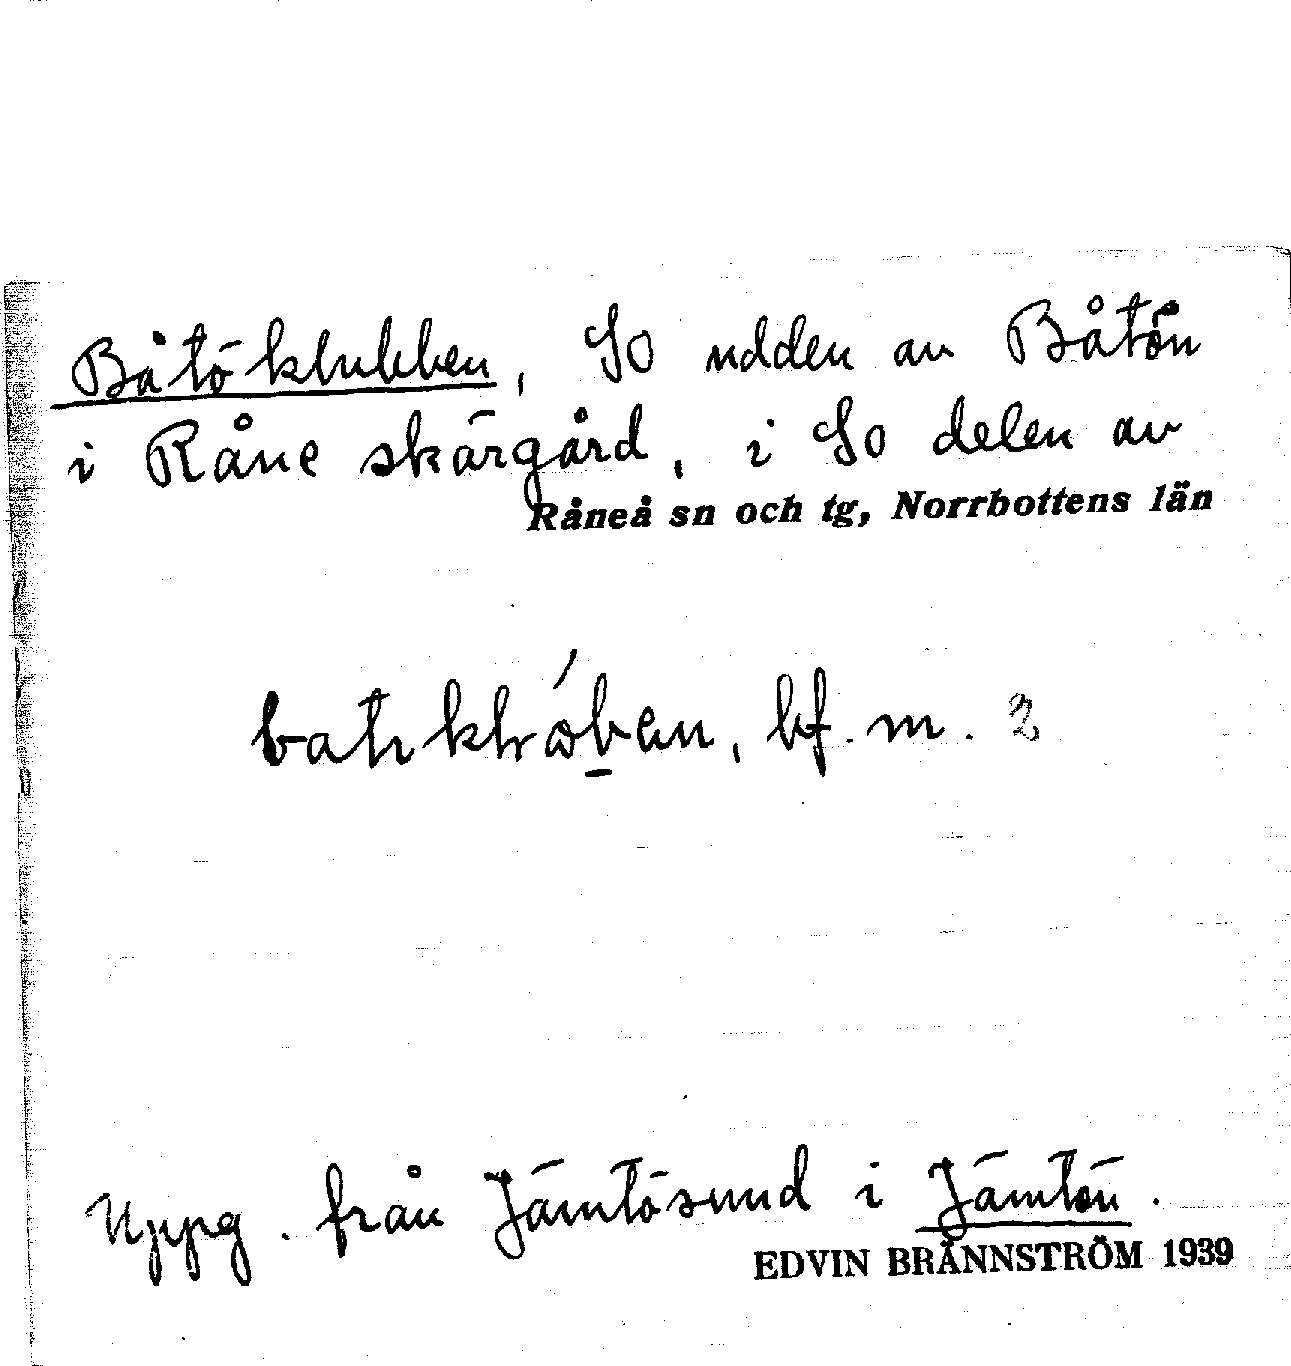 Båtöklubben, So udden av Båtön
i Råne skärgård, i So delen av
Råneå sn och tg, Norrbottens län
bf. m. 2
Uppg. från Jämtösund i Jämtön.
EDVIN BRÄNNSTRÖM 1939